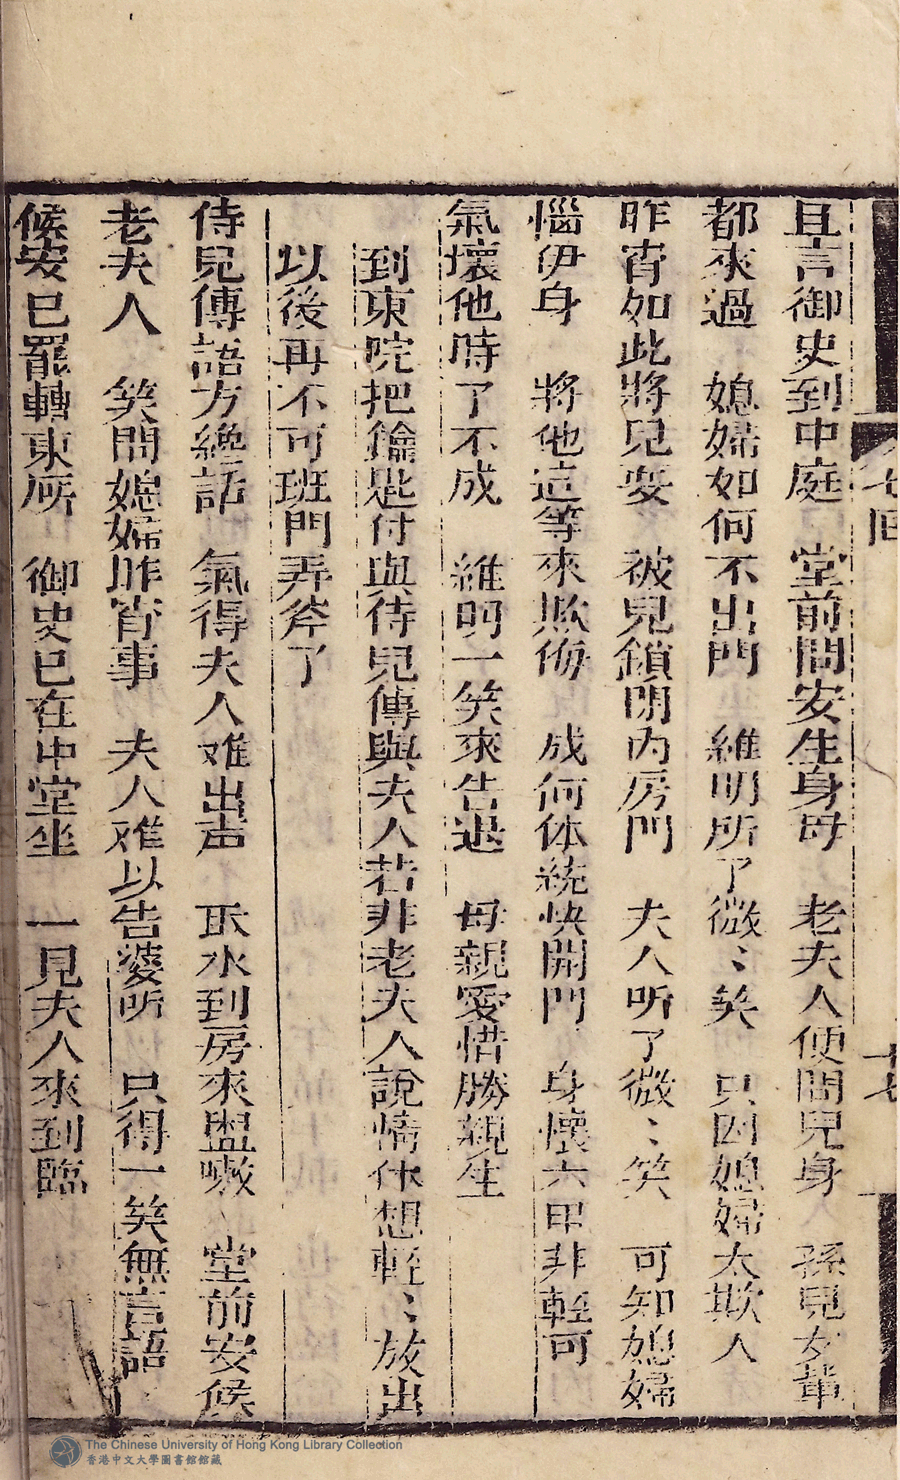 且言御史到中庭　堂前問安生身母　老夫人便問兒身　孫兒女輩
都來過　媳婦如何不出門　維明听了微〻笑　只因媳婦太欺人
昨宵如此將兒耍　被兒鎖閉內房門　夫人听了微〻笑　可知媳婦
惱伊身　將他這等來欺侮　成何体統快開門　身懷六甲非輕可
氣壞他時了不成　維明一笑來告退　母親愛惜勝親生
到東院把鑰匙付與侍兒傳與夫人若非老夫人說情休想輕〻放出
以後再不可班門弄斧了
侍兒傳語方纔話　氣得夫人难出声　取水到房來盥嗽　堂前安候
老夫人　笑問媳婦昨宵事　夫人难以告婆听　只得一笑無言語
候安已罷轉東所　御史已在中堂坐　一見夫人來到臨
七回
十七
The Chinese University of Hong Kong Library Collection
香港中文大學圖書館館藏